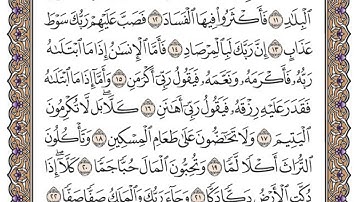 ٱلۡبِلَٰدِ ١١ فَأَكۡثَرُواْ فِيهَا ٱلۡفَسَادَ ١٢ فَصَبَّ عَلَيۡهِمۡ رَبُّكَ سَوۡطَ
عَذَابٍ ١٣ إِنَّ رَبَّكَ لَبِٱلۡمِرۡصَادِ ١٤ فَأَمَّا ٱلۡإِنسَٰنُ إِذَا مَا ٱبۡتَلَىٰهُ
رَبُّهُۥ فَأَكۡرَمَهُۥ وَنَعَّمَهُۥ فَيَقُولُ رَبِّيٓ أَكۡرَمَنِ ١٥ وَأَمَّآ إِذَا مَا ٱبۡتَلَىٰهُ
فَقَدَرَ عَلَيۡهِ رِزۡقَهُۥ فَيَقُولُ رَبِّيٓ أَهَٰنَنِ ١٦ كـَلَّاۖ بَل لَّا تُكۡرِمُونَ
ٱلۡيَتِيمَ ١٧ وَلَا تَحَٰٓضُّونَ عَلَىٰ طَعَامِ ٱلۡمِسۡكِينِ ١٨ وَتَأۡكُلُونَ
ٱلتُّرَاثَ أَكۡلٗا لَّمّٗا ١٩ وَتُحِبُّونَ ٱلۡمَالَ حُبّٗا جَمّٗا ٢٠ كـَلَّآۖ إِذَا
دُكَّتِ ٱلۡأَرۡضُ دَكّٗا دَكّٗا ٢١ وَجَآءَ رَبُّكَ وَٱلۡمَلَكُ صَفّٗا صَفّٗا ٢٢